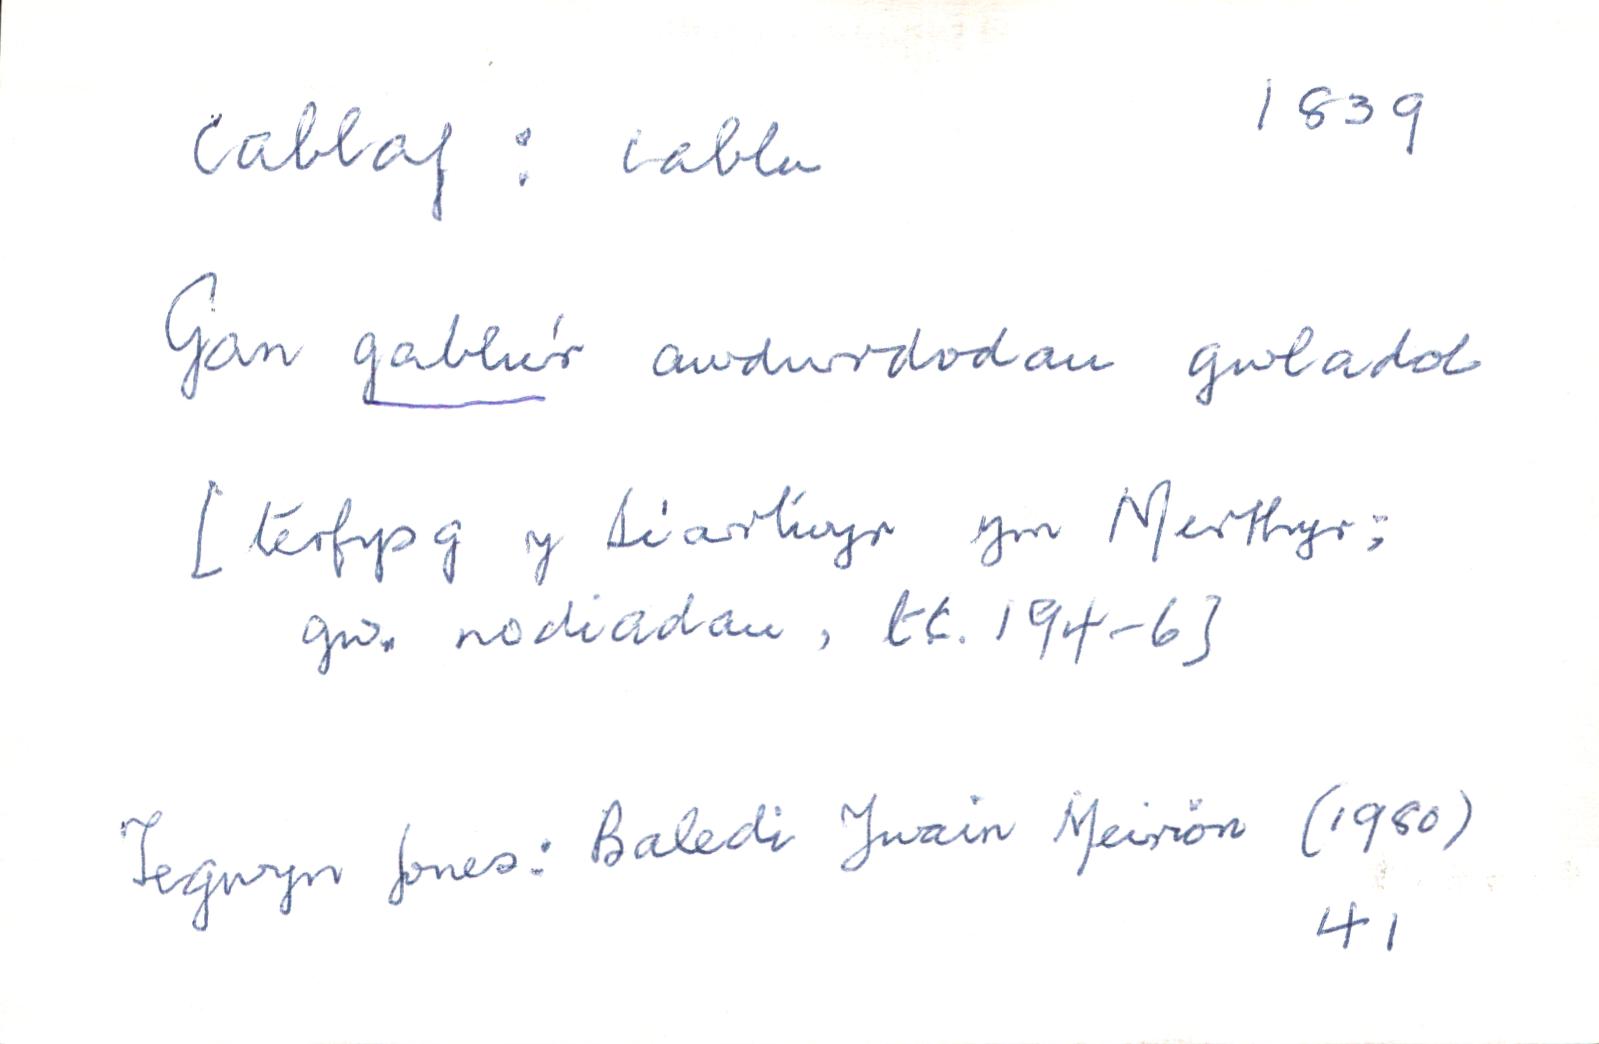 cablaf : cablu 1839
Gan gablu'r awdurdodau gwladol
[terfysg y Siartwyr ym Merthyr;
gw. nodiadau, tt. 194-6]
Tegwyn Jones: Baledi Ywain Meirion (1980)
41